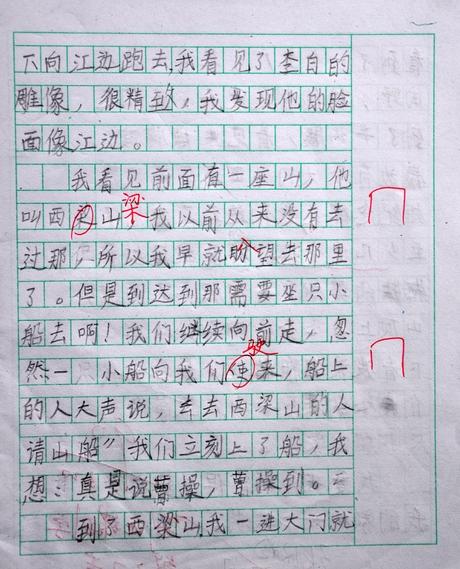 下向江边跑去,我看见了李白的
雕像，很精致，我发现他的脸
面像江边。
我看见前面有一座山，他
叫西梁山梁我以前从来没有去
过那，所以我早就盼望去那里
了。但是到达到那需要坐只小
船去啊！我们继续向前走，忽
然一小船向我们使驶来，船上
的人大声说，去去西梁山的人
请山船》我们立刻上了船，我
想：真是说曹操，曹操到。
到了西梁山,我一进大门就